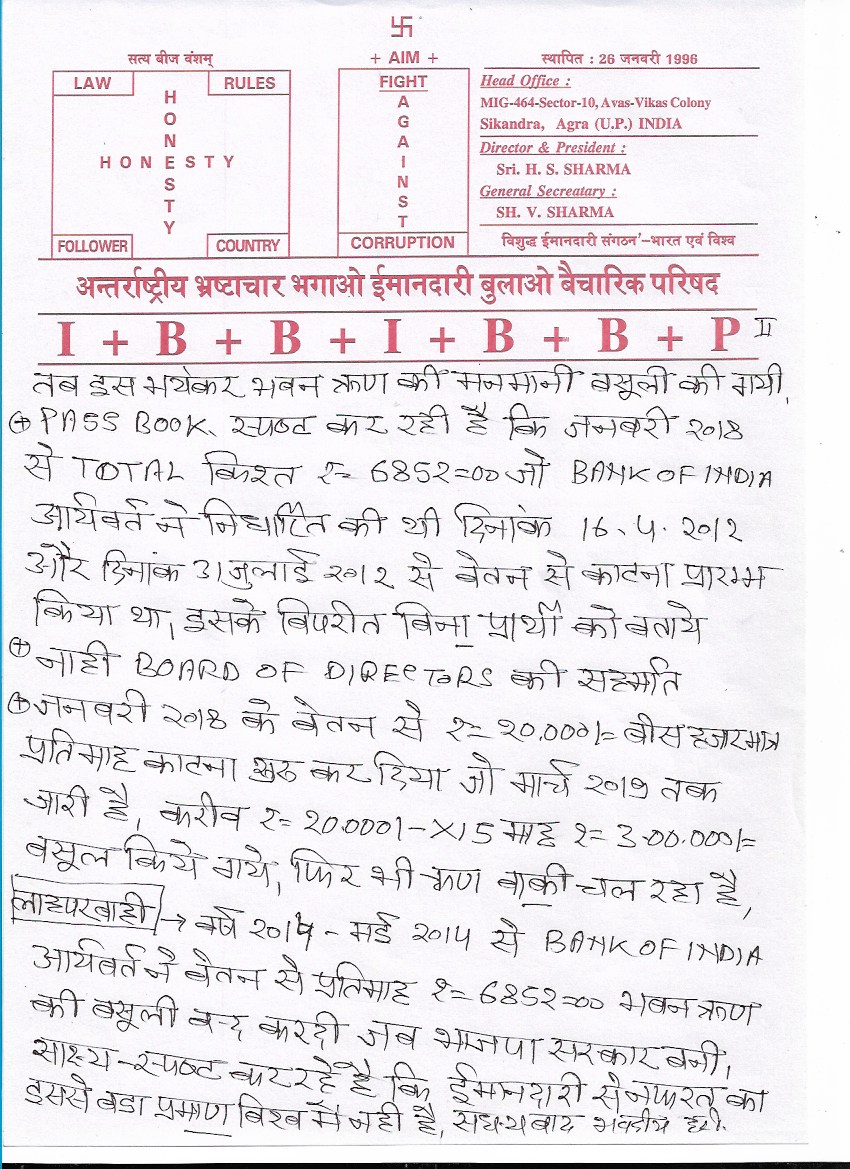 卐
सत्य बीज वंशम्
LAW
RULES
HONESTY
HONESTY
FOLLOWER
COUNTRY
+ AIM +
FIGHT
AGAINST
CORRUPTION
स्थापित : 26 जनवरी 1996
Head Office :
MIG-464-Sector-10, Avas-Vikas Colony
Sikandra, Agra (U.P.) INDIA
Director & President :
Sri. H. S. SHARMA
General Secreatary :
SH. V. SHARMA
'विशुद्ध ईमानदारी संगठन'–भारत एवं विश्व
अन्तर्राष्ट्रीय भ्रष्टाचार भगाओ ईमानदारी बुलाओ बैचारिक परिषद
I + B + B + I + B + B + P II
तब इस भयंकर भवन ऋण की मनमानी बसूली की गयी,
+ PASS BOOK. स्पष्ट कर रही है कि जनबरी 2018
से TOTAL किश्त रु= 6852=00 जो BANK OF INDIA
आर्यवर्त ने निर्धारित की थी दिनांक 16.5.2012
और दिनांक 31 जुलाई 2012 से बेतन से काटना प्रारम्भ
किया था, इसके बिपरीत बिना प्रार्थी को बताये
+ नाही BOARD OF DIRECTORS की सहमति
+ जनबरी 2018 के बेतन से रु= 20,000/= बीस हजार मात्र
प्रतिमाह काटना शुरु कर दिया जो मार्च 2019 तक
जारी है, करीब रु= 20000/- X15 माह रु= 3.00.000/=
बसूल किये गये, फिर भी ऋण बाकी चल रहा है,
लाहपरबाही → बर्ष 2014 - मई 2014 से BANK OF INDIA
आर्यवर्त ने बेतन से प्रतिमाह रु= 6852=00 भबन ऋण
की बसूली बन्द करदी जब भाजपा सरकार बनी,
साक्ष्य-स्पष्ट कर रहे है कि ईमानदारी से नफरत का
इससे बडा प्रमाण बिश्ब मैं नही है, सधन्यबाद भवदीय